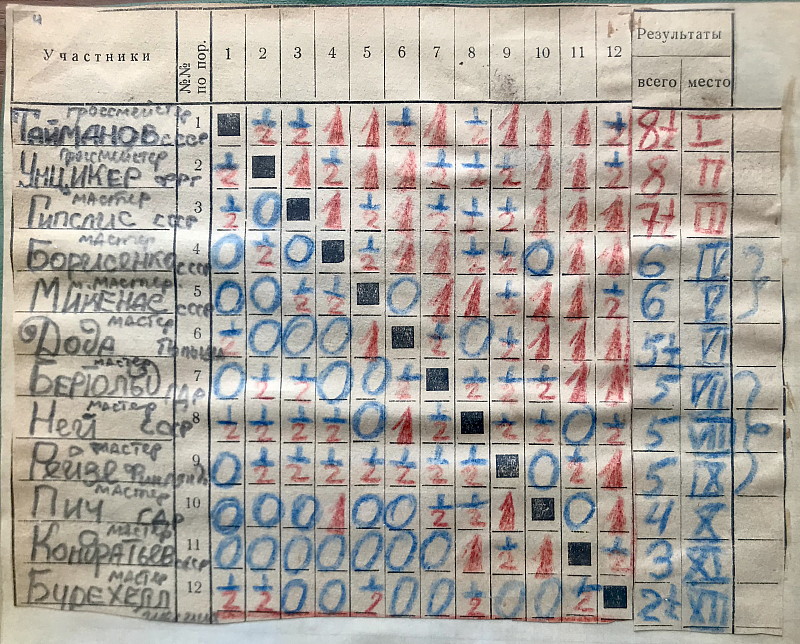 Участники №№ по пор. 1 2 3 4 5 6 7 8 9 10 11 12 Результаты
всего место
гроссмейстер
Тайманов СССР 1 ½ ½ 1 1 ½ 1 ½ 1 1 1 ½ 8½ I
гроссмейстер
Унцикер ФРГ 2 ½ 1 ½ 1 1 ½ ½ ½ 1 1 ½ 8 II
мастер
Гипслис СССР 3 ½ 0 1 ½ 1 ½ ½ ½ 1 1 1 7½ III
мастер
Борисенко СССР 4 0 ½ 0 ½ 1 1 ½ ½ 0 1 1 6 IV
м. мастер
Микенас СССР 5 0 0 ½ ½ 0 1 1 ½ 1 1 ½ 6 V
мастер
Дода Польша 6 ½ 0 0 0 1 ½ 0 ½ 1 1 1 5½ VI
мастер
Берюльд ГДР 7 0 ½ ½ 0 0 ½ ½ ½ ½ 1 1 5 VII
мастер
Ней СССР 8 ½ ½ ½ ½ 0 1 ½ ½ ½ 0 ½ 5 VIII
мастер
9 0 ½ ½ ½ ½ ½ ½ ½ 0 ½ 1 5 IX
мастер
Пич ГДР 10 0 0 0 1 0 0 ½ ½ 1 0 1 4 X
мастер
Кондратьев СССР 11 0 0 0 0 0 0 0 1 ½ 1 ½ 3 XI
мастер
Бурехелл 12 ½ ½ 0 0 ½ 0 0 ½ 0 0 ½ 2½ XII